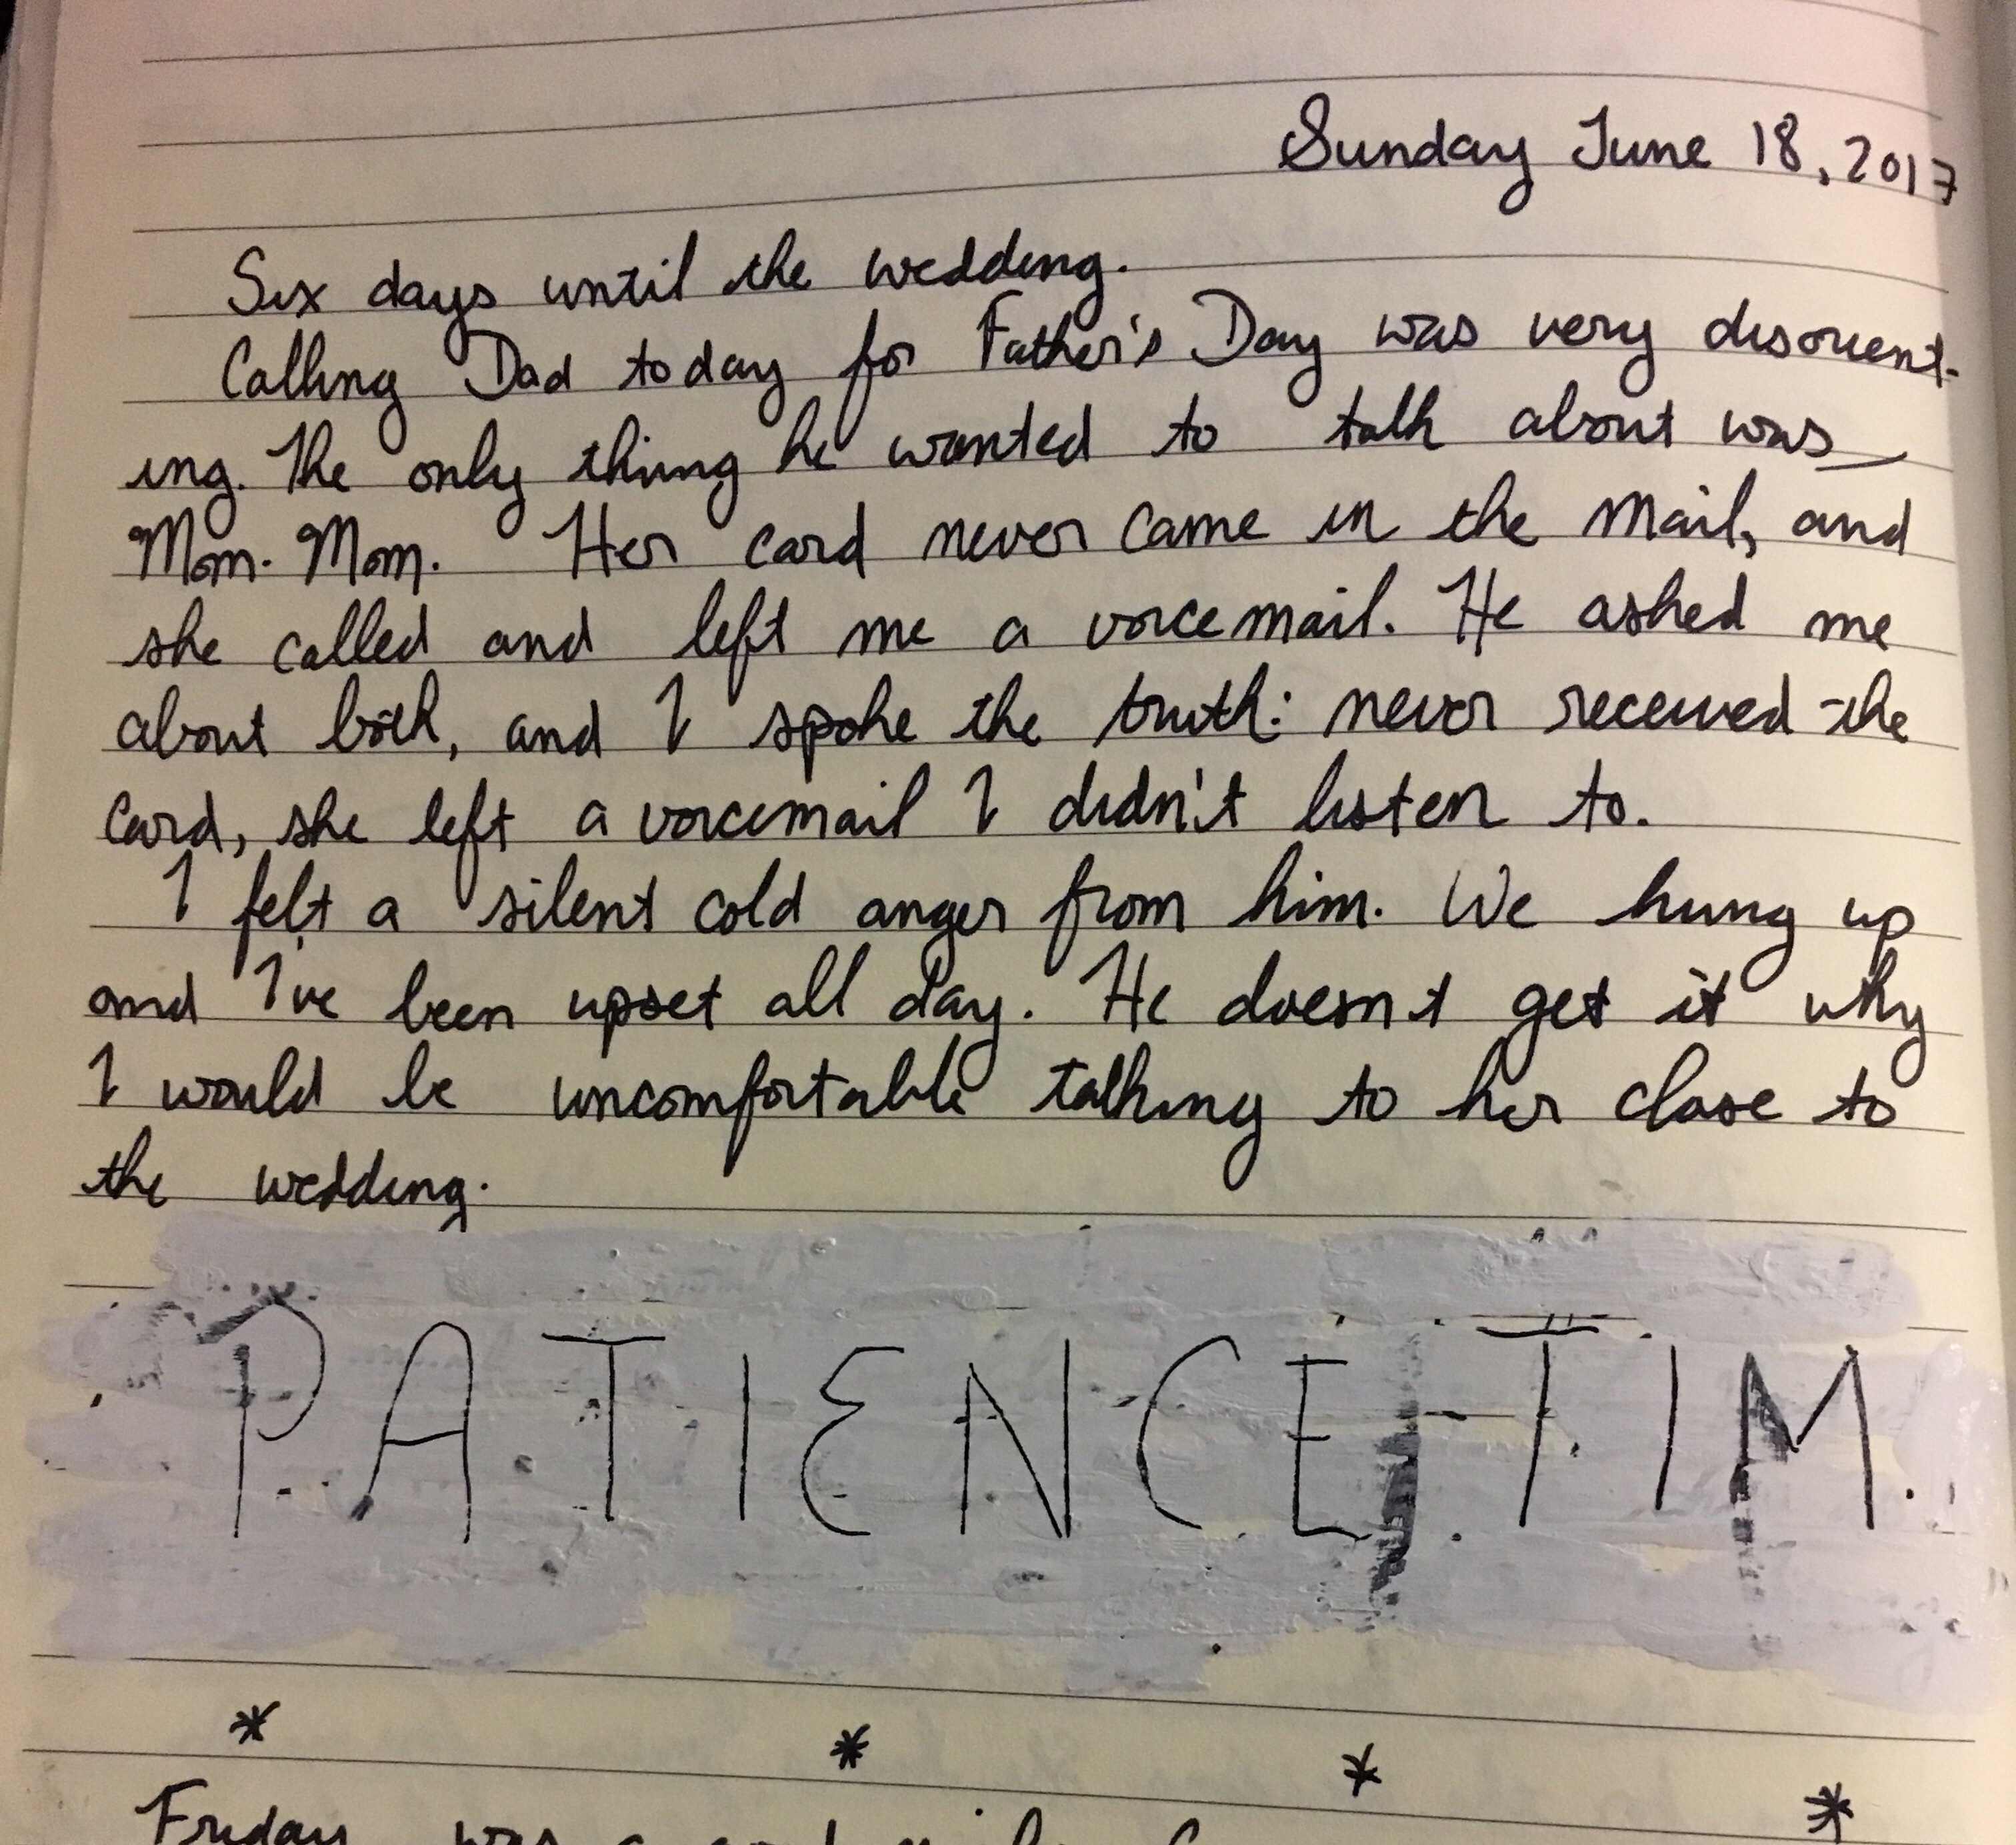 Sunday June 18, 2017
Six days until the wedding.
Calling Dad today for Father's Day was very disorient-
ing. The only thing he wanted to talk about was
Mom. Mom. Her card never came in the mail, and
she called and left me a voicemail. He asked me
about both, and I spoke the truth: never received the
card, she left a voicemail I didn't listen to.
I felt a silent cold anger from him. We hung up
and I've been upset all day. He doesn't get it why
I would be uncomfortable talking to her close to
the wedding.
PATIENCE, TIM.
* * * *
Friday was a